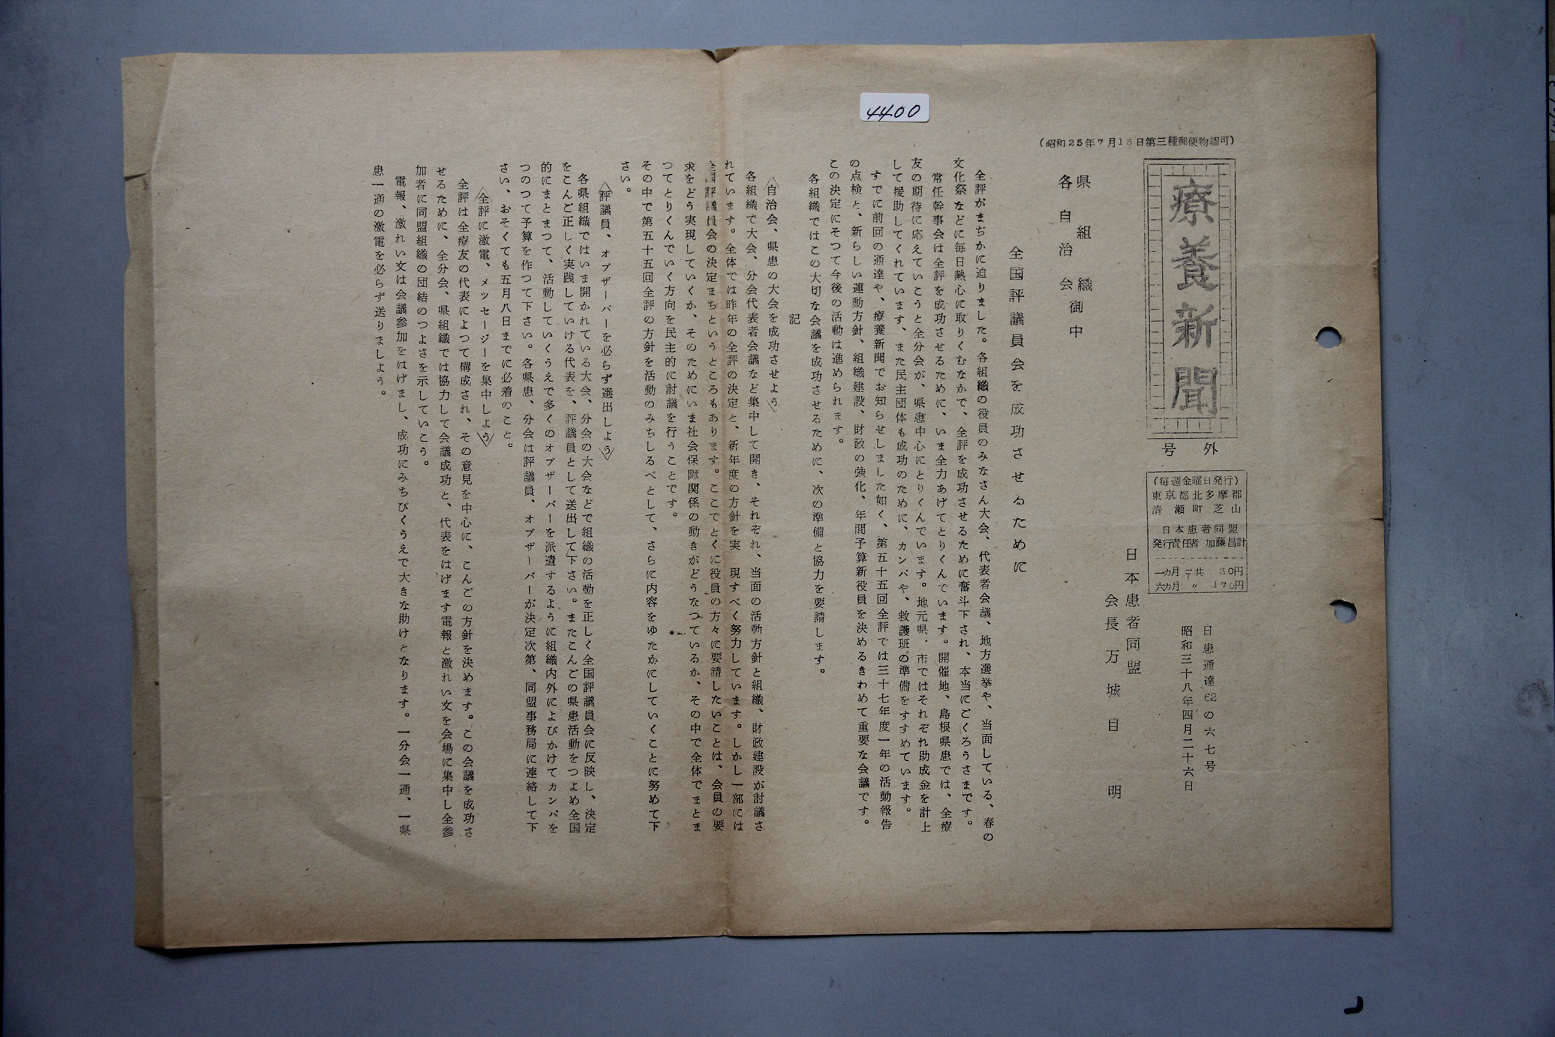 4400
(昭和25年7月13日第三種郵便物認可)
療養新聞
号外
(毎週金曜日発行)
東京都北多摩郡
清瀬町芝山
日本患者同盟
発行責任者 加藤昌計
一カ月 〒共 30円
六カ月 〃 170円
日患通達
の六七号
昭和三十八年四月二十六日
日本患者同盟
会長 万城目 明
県組織
各自治会 御中
全国評議員会を成功させるために
全評がまぢかに迫りました。各組織の役員のみなさん大会、代表者会議、地方選挙や、当面している、春の
文化祭などに毎日熱心に取りくむなかで、全評を成功させるために奮斗下され、本当にごくろうさまです。
常任幹事会は全評を成功させるために、いま全力あげてとりくんでいます。開催地、島根県患では、全療
友の期待に応えていこうと全分会が、県患中心にとりくんでいます。地元県、市ではそれぞれ助成金を計上
して援助してくれています、また民主団体も成功のために、カンパや、救護班の準備をすすめています。
すでに前回の通達や、療養新聞でお知らせしました如く、第五十五回全評では三十七年度一年の活動報告
の点検と、新らしい運動方針、組織建設、財政の強化、年間予算新役員を決めるきわめて重要な会議です。
この決定にそつて今後の活動は進められます。
各組織ではこの大切な会議を成功させるために、次の準備と協力を要請します。
記
〈自治会、県患の大会を成功させよう〉
各組織で大会、分会代表者会議など集中して開き、それぞれ、当面の活動方針と組織、財政建設が討議さ
れています。全体では昨年の全評の決定と、新年度の方針を実現すべく努力しています。しかし一部には
全国評議員会の決定まちというところもあります。ここでとくに役員の方々に要請したいことは、会員の要
求をどう実現していくか、そのためにいま社会保障関係の動きがどうなつているか、その中で全体でまとま
つてとりくんでいく方向を民主的に討議を行うことです。
その中で第五十五回全評の方針を活動のみちしるべとして、さらに内容をゆたかにしていくことに努めて下
さい。
〈評議員、オブザーバーを必らず選出しよう〉
各県組織ではいま開かれている大会、分会の大会などで組織の活動を正しく全国評議員会に反映し、決定
をこんご正しく実践していける代表を、評議員として送出して下さい。またこんごの県患活動をつよめ全国
的にまとまつて、活動していくうえで多くのオブザーバーを派遣するように組織内外によびかけてカンパを
つのつて予算を作つて下さい。各県患、分会は評議員、オブザーバーが決定次第、同盟事務局に連絡して下
さい、おそくても五月八日までに必着のこと。
〈全評に激電、メツセージーを集中しよう〉
全評は全療友の代表によつて構成され、その意見を中心に、こんごの方針を決めます。この会議を成功さ
せるために、全分会、県組織では協力して会議成功と、代表をはげます電報と激れい文を会場に集中し全参
加者に同盟組織の団結のつよさを示していこう。
電報、激れい文は会議参加をはげまし、成功にみちびくうえで大きな助けとなります。一分会一通、一県
患一通の激電を必らず送りましよう。